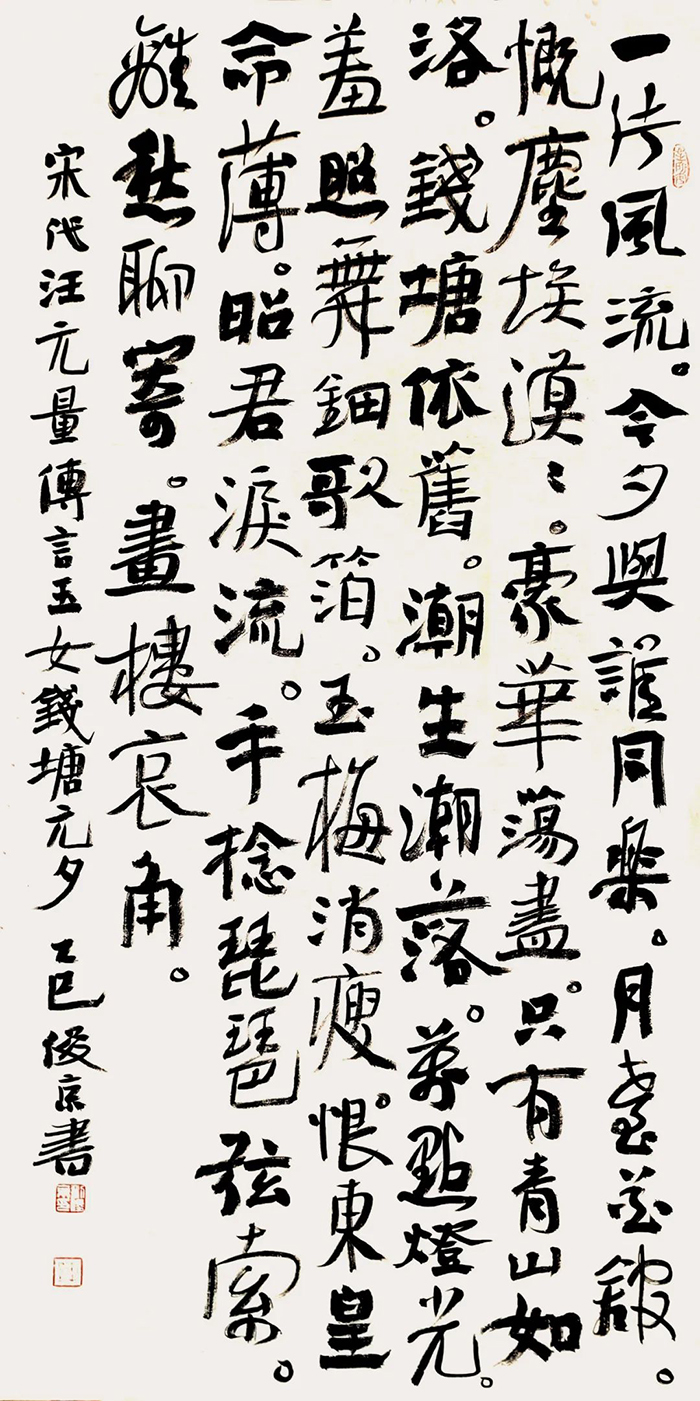 一片風流。今夕與誰同樂。月臺花館。
慨塵埃漠〻。豪華蕩盡。只有青山如
洛。錢塘依舊。潮生潮落。萬點燈光。
羞照舞鈿歌箔。玉梅消瘦。恨東皇
命薄。昭君淚流。手捻琵琶弦索。
離愁聊寄。畫樓哀角。
宋代汪元量傳言玉女錢塘元夕 乙巳俊京書